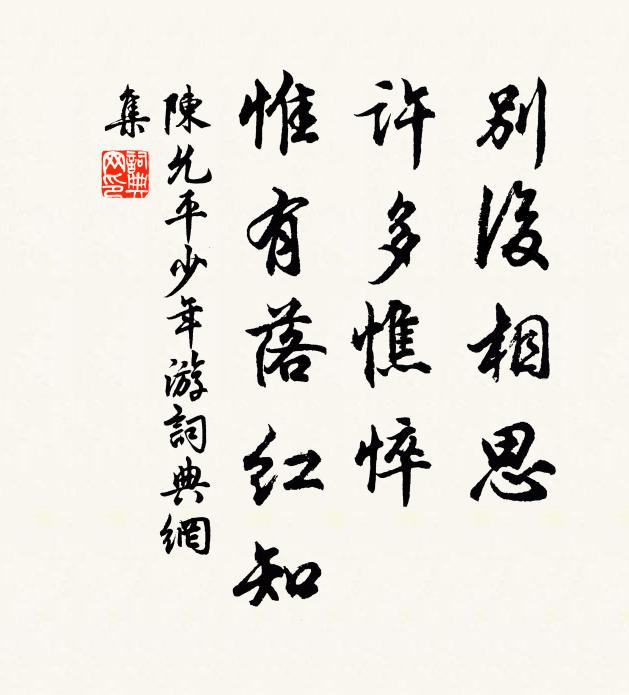 別後相思
許多憔悴
惟有落紅知
陳允平少年游詞典網
集
詞典
网印